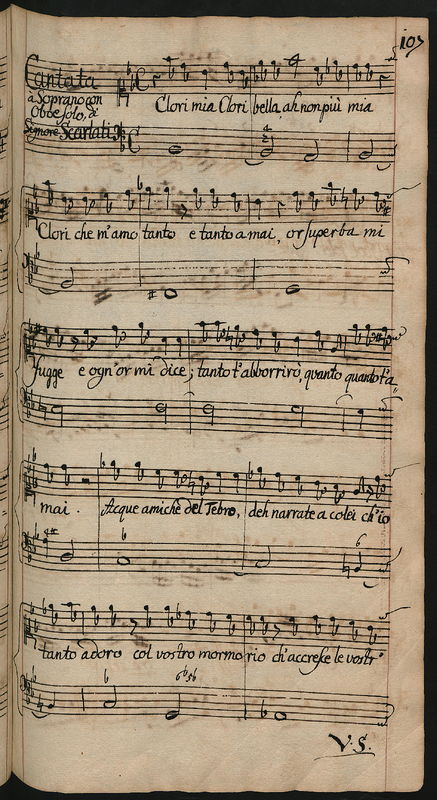 103
Cantata
a Soprano con
Oboe solo, di
Signore Scarlati
Clori mia Clori bella, ah non più mia
Clori che m'amo tanto e tanto amai, or superba mi
fugge e ogn'or mi dice; tanto t'abborrirò, quanto quanto t'a„
mai. Acque amiche del Tebro, deh narrate a colei ch'io
tanto adoro col vostro mormorio ch'accresce le vostr'
V. S.